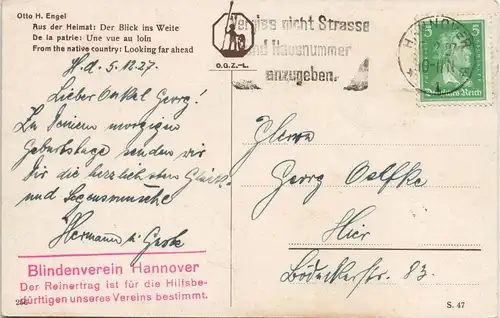 Otto H. Engel
Aus der Heimat: Der Blick ins Weite
De la patrie: Une vue au loin
From the native country: Looking far ahead
O.G.Z.-L.
Vergiss nicht Strasse
und Hausnummer
anzugeben.
HANNOVER
5 5
Deutsches Reich
H. d. 5.12.27.
Lieber Onkel Georg!
Zu Deinem morgigen
Geburtstage senden wir
Dir die herzlichsten Glück-
und Segenswünsche
Hermann u.
Herrn
Georg Oelfke
Hier
Bödeckerstr. 83.
Blindenverein Hannover
Der Reinertrag ist für die Hilfsbe-
dürftigen unseres Vereins bestimmt.
S. 47